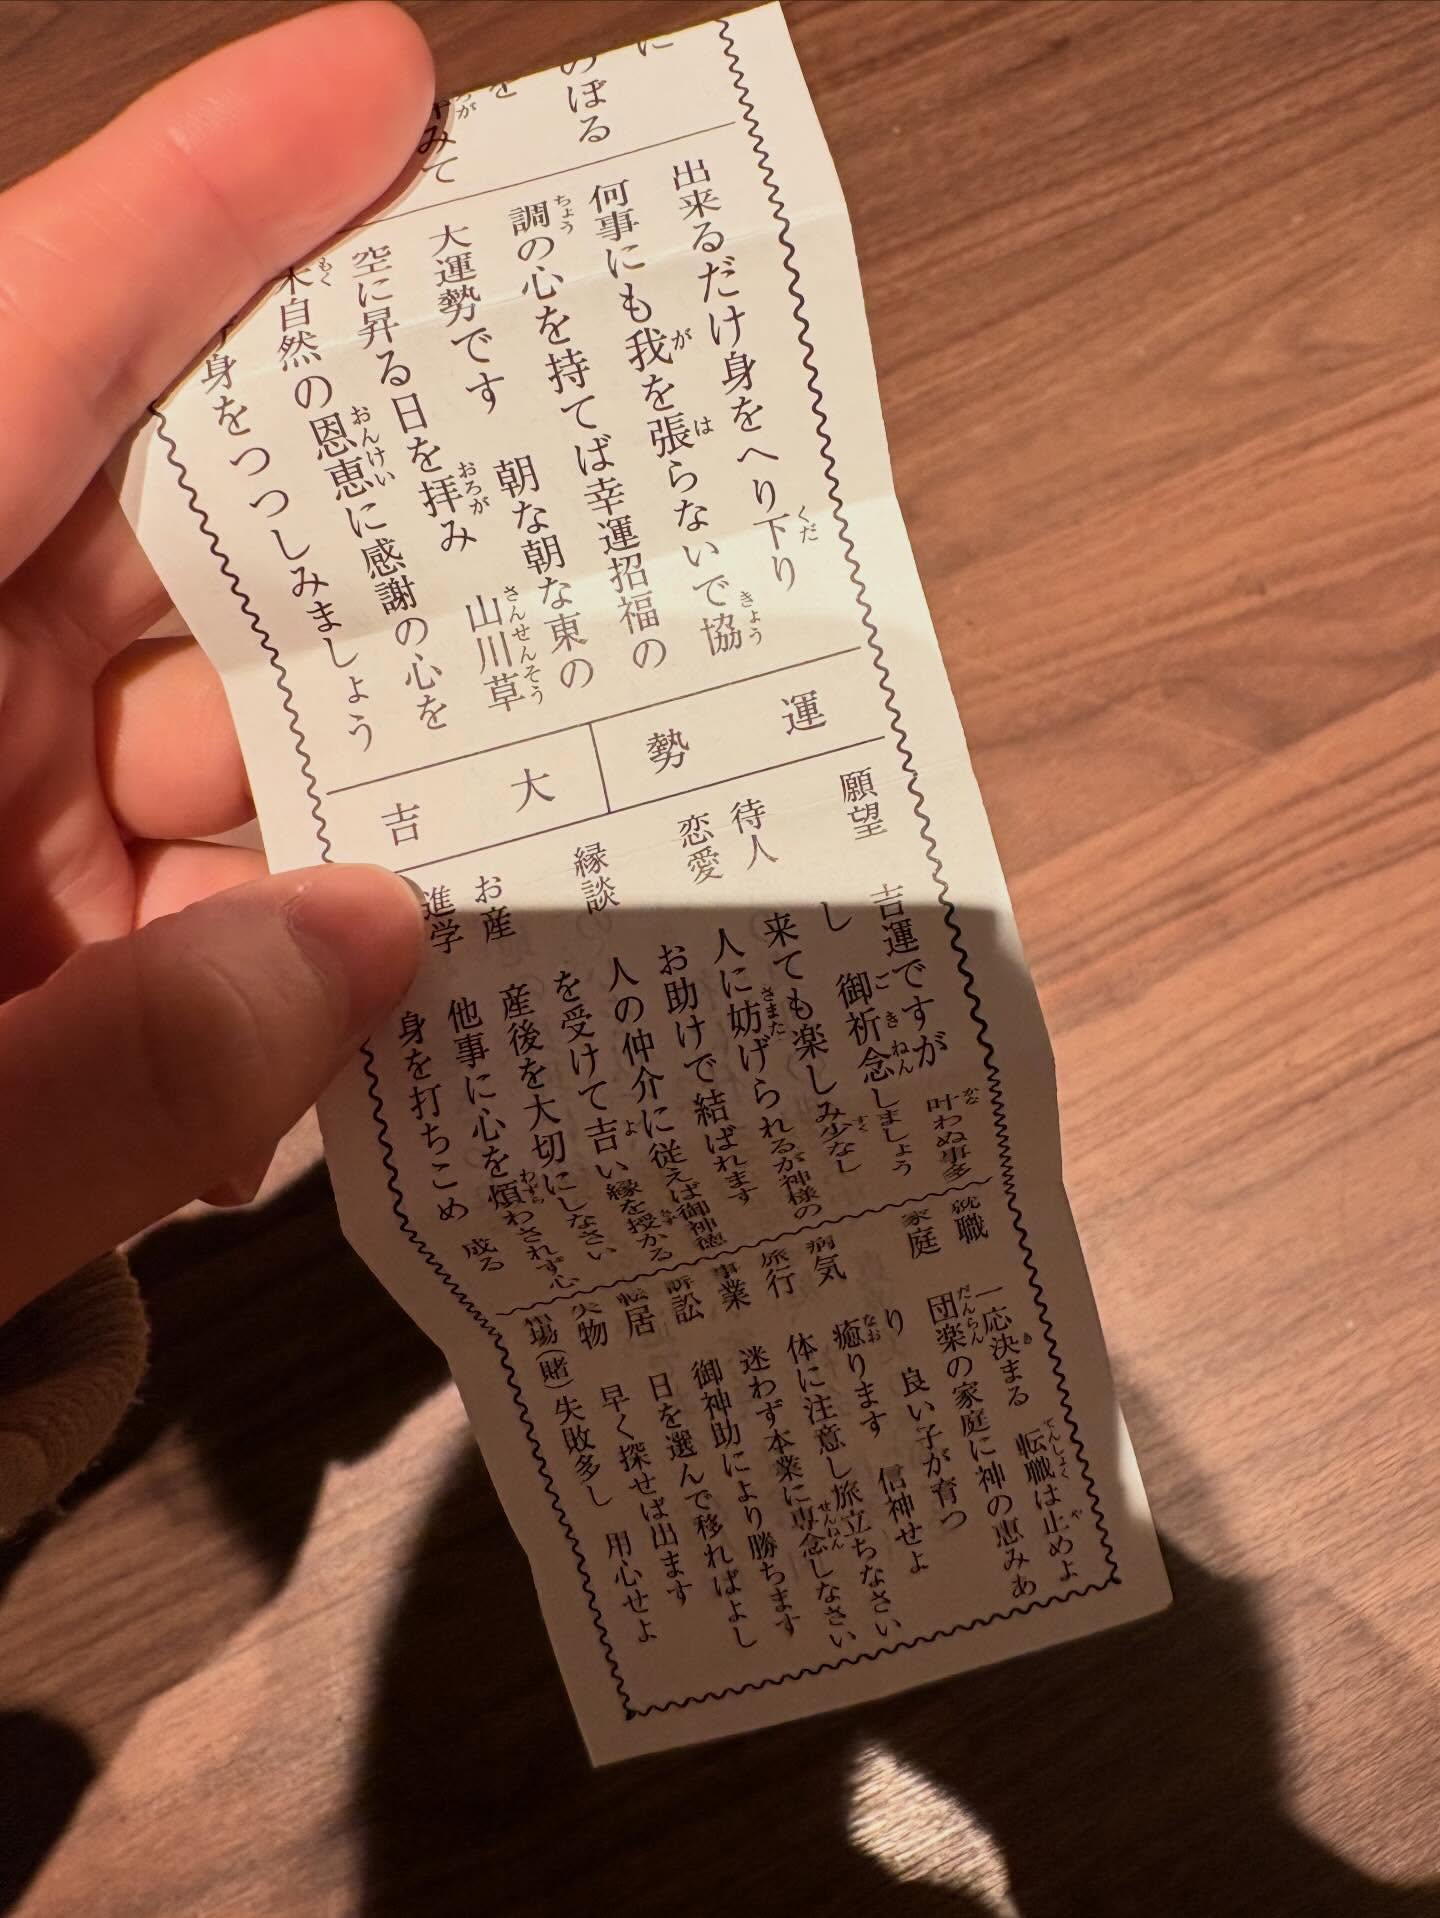 に
のぼる
を
みて
出来るだけ身をへり下り
何事にも我を張らないで協
調の心を持てば幸運招福の
大運勢です 朝な朝な東の
空に昇る日を拝み 山川草
木自然の恩恵に感謝の心を
身をつつしみましょう
運勢
大吉
願望 吉運ですが 叶わぬ事多
し 御祈念しましょう
待人 来ても楽しみ少なし
恋愛 人に妨げられるが神様の
お助けで結ばれます
縁談 人の仲介に従えば御神徳
を受けて吉い縁を授かる
お産 産後を大切にしなさい
進学 他事に心を煩わされず心
身を打ちこめ 成る
就職 一応決まる 転職は止めよ
家庭 団楽の家庭に神の恵みあ
り 良い子が育つ
病気 癒ります 信神せよ
旅行 体に注意し旅立ちなさい
事業 迷わず本業に専念しなさい
訴訟 御神助により勝ちます
転居 日を選んで移ればよし
失物 早く探せば出ます
相場(賭) 失敗多し 用心せよ